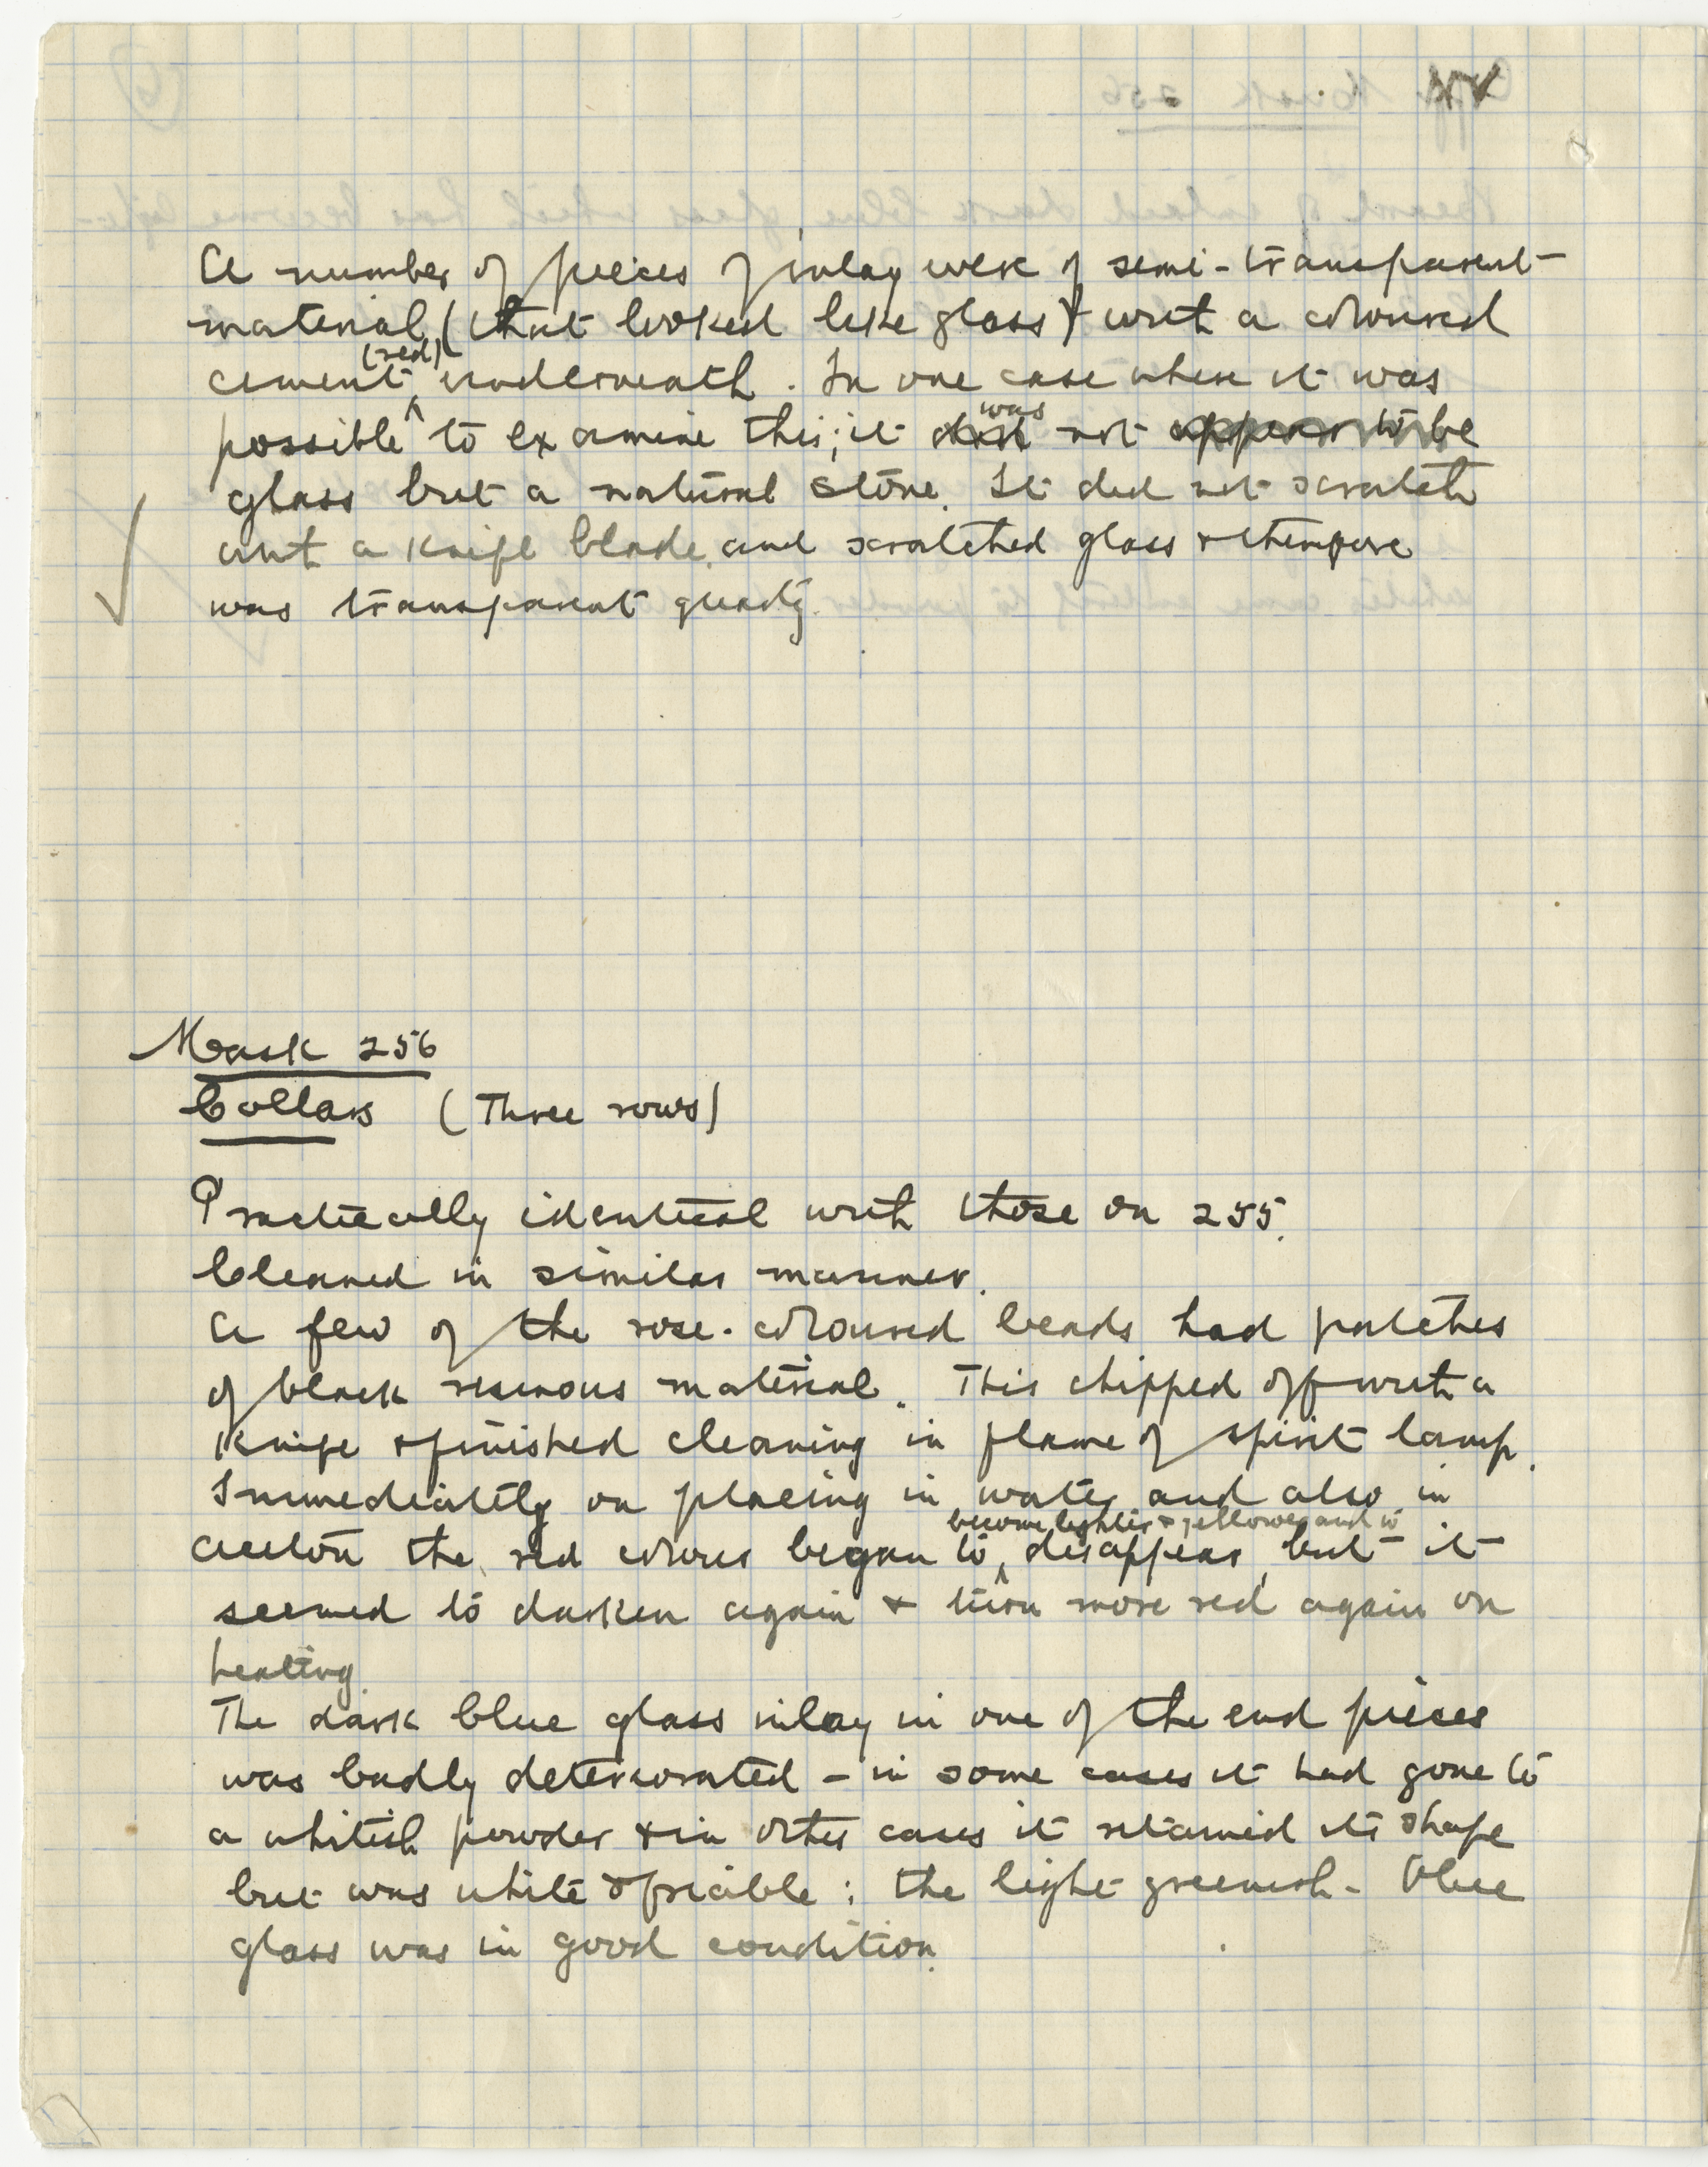 A number of pieces of inlay were of semi-transparent
material (that looked like glass) with a coloured
(red)
cement underneath. In one case where it was
was
possible to examine this; it does not appear to be
glass but a natural stone. It did not scratch
with a knife blade, and scratched glass & therefore
was transparent quartz.
Mask 256
Collar (Three rows)
Practically identical with those on 255.
Cleaned in similar manner.
A few of the rose-coloured beads had patches
of black resinous material. This chipped off with a
knife & finished cleaning in flame of spirit lamp.
Immediately on placing in water and also in
become lighter & yellower and to
aceton the red colour began to disappear, but it
seemed to darken again & turn more red again on
heating.
The dark blue glass inlay in one of the end pieces
was badly deteriorated - in some cases it had gone to
a whitish powder & in other cases it retained its shape
but was white & friable; the light greenish-blue
glass was in good condition.